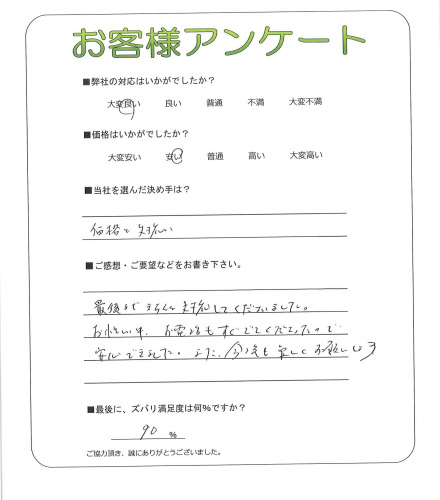 お客様アンケート
■弊社の対応はいかがでしたか？
大変良い 良い 普通 不満 大変不満
■価格はいかがでしたか？
大変安い 安い 普通 高い 大変高い
■当社を選んだ決め手は？
価格と対応
■ご感想・ご要望などをお書き下さい。
最後まできちんと対応してくださいました。
お忙しい中、お電話もすぐでてくださったので
安心できました。また、今後も宜しくお願いします
■最後に、ズバリ満足度は何%ですか？
90 %
ご協力頂き、誠にありがとうございました。